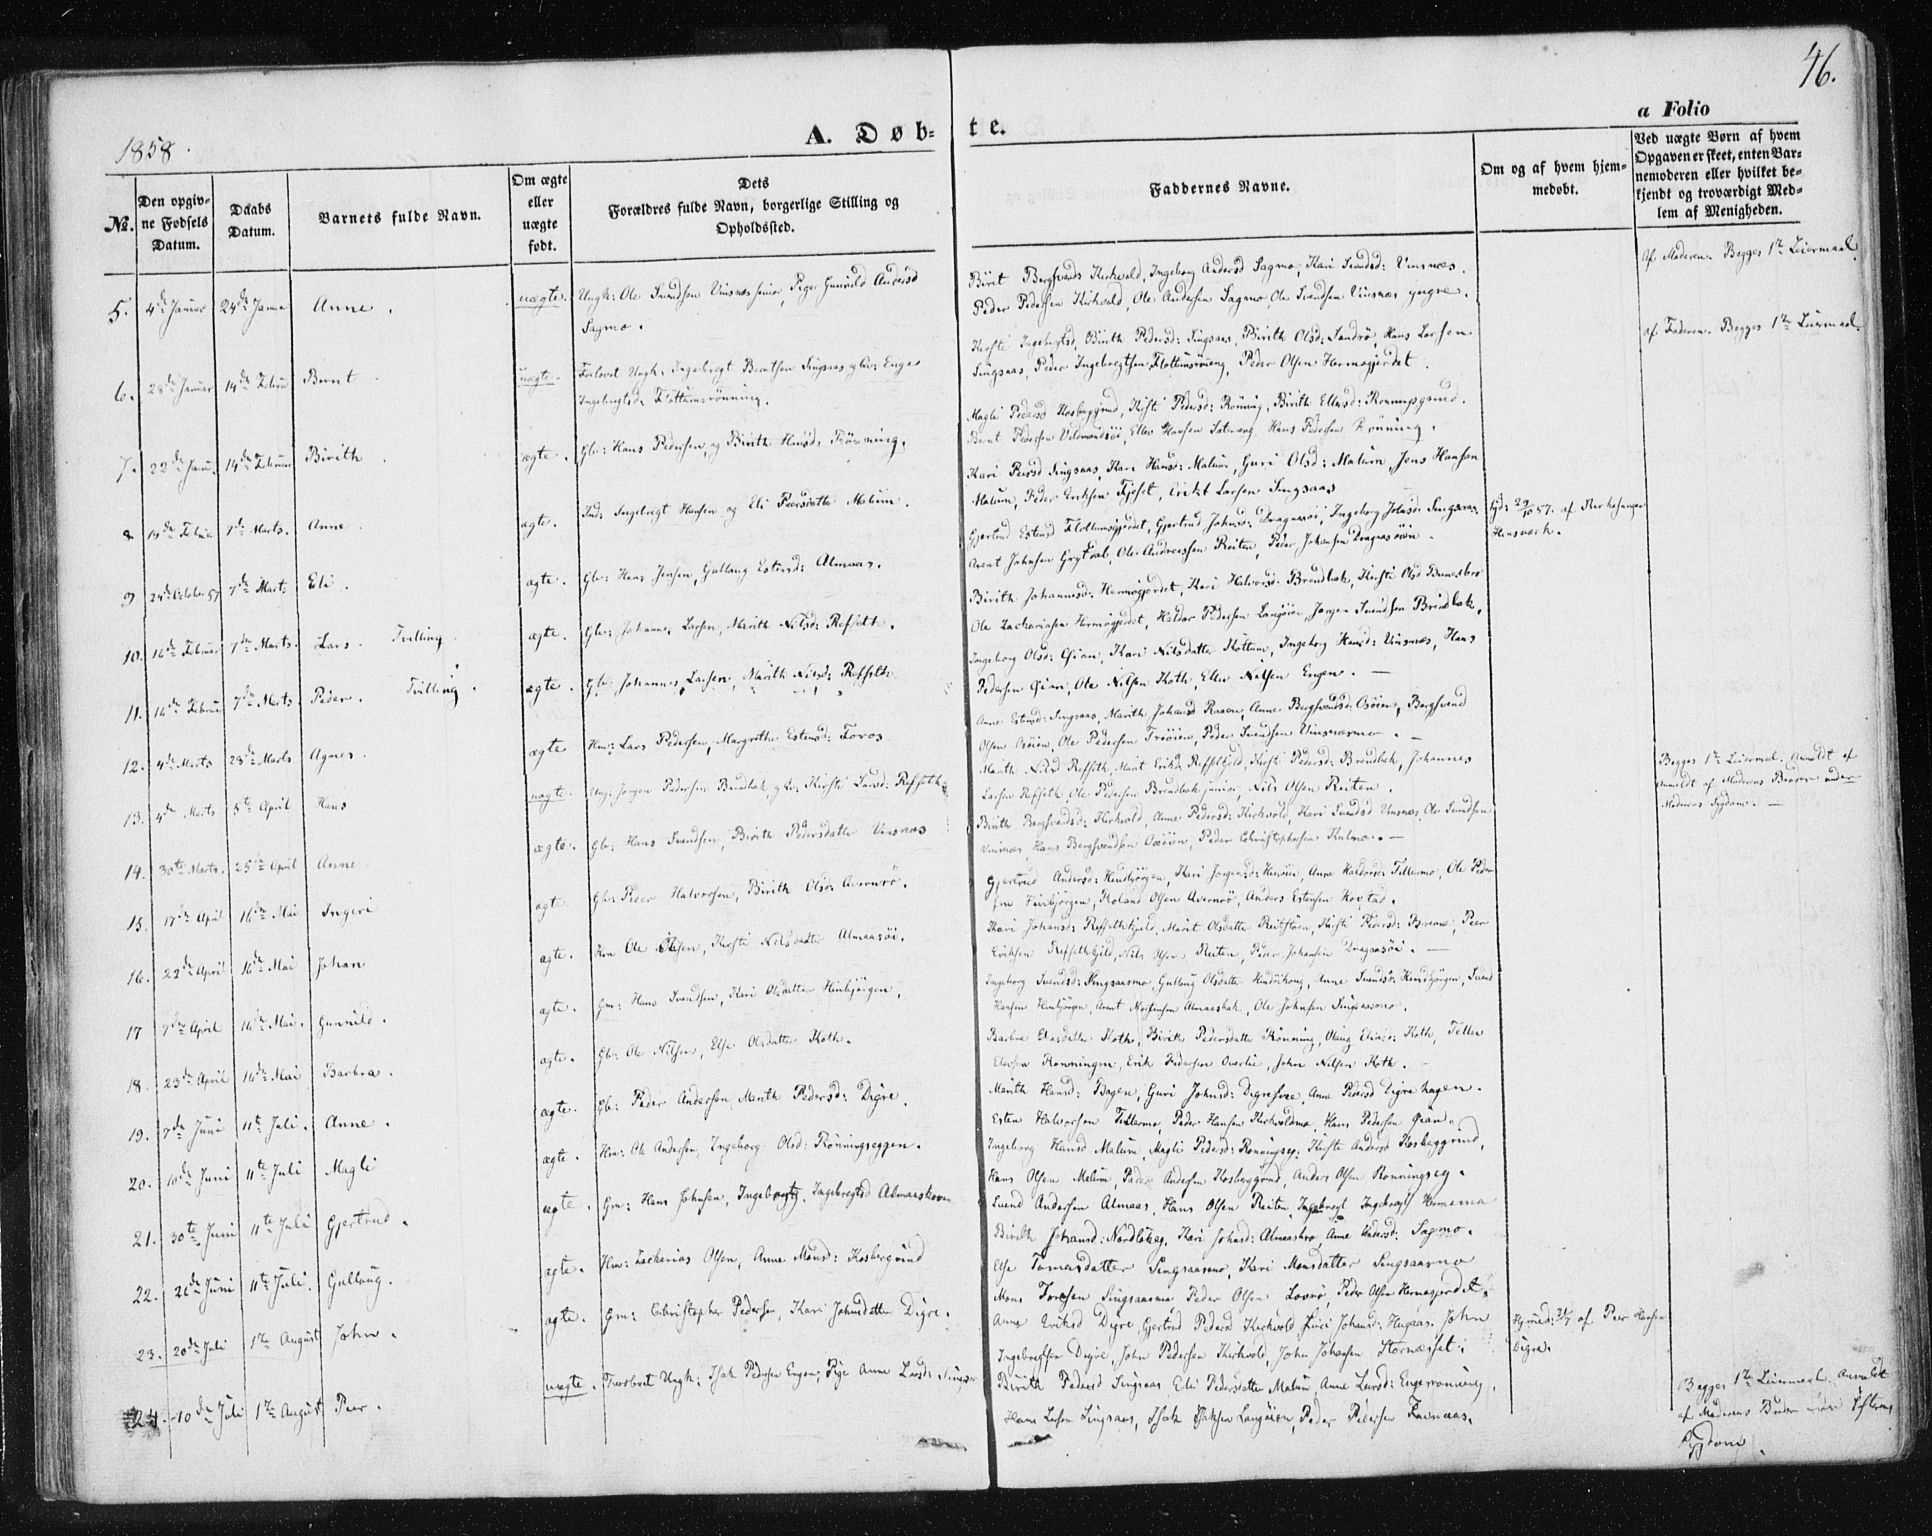 46.
a Folio
1858.
A. Døb=
te.
No.
Den opgiv=
ne Fødsels
Datum.
Daabs
Datum.
Barnets fulde Navn.
Om ægte
eller
uægte
født.
Dets
Forældres fulde Navn, borgerlige Stilling og
Opholdssted.
Faddernes Navne.
Om og af hvem hjem=
medøbt.
Ved uægte Børn af hvem
Opgaven er skeet, enten Bar=
nemoderen eller hvilket be=
kjendt og troværdigt Med=
lem af Menigheden.
5. 4de Januar 24de Janua Anne. uægte. Ungk: Ole Svendsen Vinsnes senior, Pige Gunild Andersd
Sagmo.
Biret Bergsvends Kirkvold, Ingeborg Andersd Sagmo, Kari Svendsd: Vinsnes.
Peder Pedersen Kirkvold, Ole Andersen Sagmo, Ole Svendsen Vinsnes yngre.
Af Moderen. Begges 1te Leiermaal.
6. 28de Januar 14de Februar Bernt uægte. Forlovet Ungk: Ingebregt Berntsen Singsaas og
Ingebregtsd: Flottumsrönning.
Kirsti Ingebregtsd, Birith Pedersd: Singsaas, Birith Olsd: Sandrö, Hans Larsen
Singsaas, Peder Ingebregtsen Flottumsrönning, Peder Olsen Hermogjerdet.
af Faderen. Begges 1te Leiermaal.
7. 22de Janu. 14de Februar Birith ægte. Gbr: Hans Pedersen og Birith Hansd: Rönning.
Magli Pedersd Kosberggrind, Kirsti Pedersd: Rönning, Birith Ellevsd: Rönningsgrind.
Bernt Pedersen, Ellev Hansen, Hans Pedersen Rönning.
8 19de Februar 7de Marts. Anne ægte. Ind: Ingebregt Hansen og Eli Peersdatter Malum.
Kari Peersd Singsaas, Kari Hansd: Malum, Guri Olsd: Malum, Jens Hansen
Malum, Peder Eriksen Fjeset, Erik Larsen Singsaas
9 24de October 57 7de Marts Eli. ægte. Gbr: Hans Jensen, Gullaug Estensd: Almaas.
Gjertrud Estensd Flottumsgjerdet, Gjertrud Johnsd: Dragaasöi, Ingeborg Johnsd: Singsaas
Arent Johnsen Grytdal, Ole Andreassen Reiten, Peder Johnsen Dragaasöien.
hjd: 29/10 57. af Kirkesanger
Hensværk.
10. 16de Februar 7de Marts. Lars. Tvilling ægte. Gbr: Johannes Larsen, Marith Nilsd: Refseth.
Birith Johannesd: Hermogjerdet, Kari Halvorsd: Brendbak, Kirsti Olsd
Ole Zachariasen Hermogjerdet, Haldor Pedersen Langöien, Jørgen Svendsen Brendbak.
11. 16de Februar 7de Marts. Peder. Tvilling. ægte. Gbr Johannes Larsen, Marith Nilsd: Refseth
Ingeborg Olsd: Qian, Kari Nilsdatter Kottum, Ingeborg Hansd: Vinsnes, Hans
Pedersen Qian, Ole Nilsen Koth, Ellev Nilsen Engen. —
12. 4de Marts 28de Marts Agnes. ægte Hm: Lars Pedersen, Margrethe Estensd: Foros
Anne Estensd: Singsaas, Marith Johansd Raaen, Anne Bergsvendsd: Osöien, Bergsvend
Olsen Osöien, Ole Pedersen Trööien, Peder Svendsen Vinsnesmo. —
13. 4de Marts 5te April Hans uægte. Ung: Jørgen Pedersen Brendbak, Kirsti Larsd: Refseth
Marith Nilsd Refseth, Marit Eriksd Refsethjeld, Kirsti Pedersd: Brendbak, Johannes
Larsen Refseth Ole Pedersen Brendbak junior, Nils Olsen Reiten.
Begges 1te Leiermaal. Anmeldt af
anmeldt af Moderens Broder under
Moderens Sygdom. —
14. 30te Marts. 25de April Anne ægte. Gbr: Hans Svendsen, Birith Pedersdatter Vinsnes
Birith Bergsvendsd: Kirkvold, Anne Pedersd: Kirkvold, Kari Svendsd Vinsnes, Ole Svendsen
Vinsnes, Hans Bergsvendsen Osöien, Peder Christophersen Kulmo. —
15. 17de April 16de Mai Ingeri ægte. Gbr: Peder Halvorsen, Birith Olsd: Avernrö.
Gjertrud Andersd: Hindbjörgen, Kari Jørgensd: Hensöien, Anne Haldorsd: Fillermo, Ole Peder
sen Hinbjörgen, Roland Olsen Avernrö, Anders Estensen Hovstad.
16. 22de April 16de Mai Johan ægte. Hm Ole Olsen, Kirsti Nilsdatter Almaasöi.
Kari Johansd: Refsethhjeld, Marit Olsdatter Reitstöen, Kirsti Peersd: Brenna, Peer
Eriksen Refsethhjeld, Nils Olsen Reiten, Peder Johansen Dragaasöi. —
17 7de April 16de Mai. Gunnild. ægte. Gm: Hans Svendsen, Kari Olsdatter Hinbjörgen.
Ingeborg Svendsd: Singsaasmo, Gullaug Olsdatter, Anne Svendsd: Hindbjörgen, Svend
Hansen Hinbjörgen, Arent Mortensen Almaasbak, Ole Johnsen Singsaasmo.
18. 23de April 16de Mai Barbra. ægte. Gbr: Ole Nilsen, Else Olsdatter Koth.
Barbra Olasdatter Koth, Birith Pedersdatter Rönning, Olaug Eliasd: Koth, Tellev
Elevsen Rønningen, Erik Pedersen Overlie, John Nilsen Koth. —
19. 7de Juni 11te Juli. Anne. ægte. Gbr: Peder Andersen, Marith Pedersd: Digre.
Marith Hansd: Bagen, Guri Johnsd: Digresvee, Anne Pedersd Digrehagen.
Esten Halvorsen Fillermo, Peder Hansen Kirkvoldmo, Hans Pedersen Qian.
20. 10de Juni 11te Juli Magli ægte. Hm: Ole Andersen, Ingeborg Olsd: Rönningseggen.
Ingeborg Hansd Malum, Magli Pedersd: Rønningseg, Kirsti Andersd Kosberggrind,
Hans Olsen Malum, Peder Andersen Kosberggrind, Anders Olsen Rønningseg.
21. 30te Juni 11te Juli Gjertrud. ægte. Gm: Hans Johnsen, Ingeborg Ingebregtsd Almaaskroen
Svend Andersen Almaas, Hans Olsen Reiten, Ingebregt Ingebregts Hermoma
Birith Johansd: Nordløkeg, Kari Johnsd: Almaaskro, Anne Andersd: Sagmo.
22. 26de Juni 11te Juli. Gullaug. ægte. Hm: Zacharias Olsen, Anne Monsd: Kosbergrind
Else Tomasdatter Singsaasmo, Kari Monsdatter Singsaasmo
Mons Toresen Singsaasmo Peder Olsen Lovrö, Peder Olsen Hermogjerdet.
23. 20de Juli 1te August John. ægte. Gm: Christopher Pedersen, Kari Johnsdatter Digre.
Anne Eriksd Digre, Gjertrud Pedersd Kirkvold, Guri Johansd: Hugaas, John
Ingebregtsen Digre, John Pedersen Kirkvold, John Johansen Stornæsset.
Hjemd: 21/7 af Peer Hansen
Digre.
24. 10de Juli 1te August Peer. uægte. Forlovet Ungk: Isak Pedersen Engen, Pige Anne Larsd: Singsaas
Birith Pedersd Singsaas Eli Pedersdatter Malum, Anne Larsd: Engerönning,
Hans Larsen Singsaas, Isak Isaksen Langöien, Peder Pedersen Furnaas.
Begges 1te Leiermaal. Anmeldt
af Moderens Broder under hendes
Sygdom.